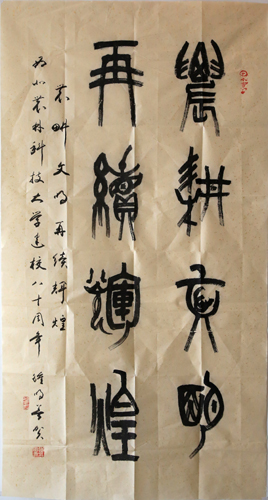 農耕文明
再續輝煌
农畊文明再续辉煌
西北农林科技大学建校八十周年 钟明善贺